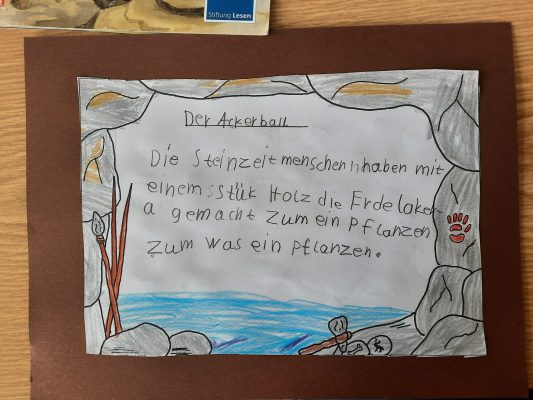 Stiftung Lesen
Der Ackerball
Die Steinzeitmenschen hhaben mit
einem sstük Holz die Erde laker
a gemacht zum ein pflanzen
zum was ein pflanzen.